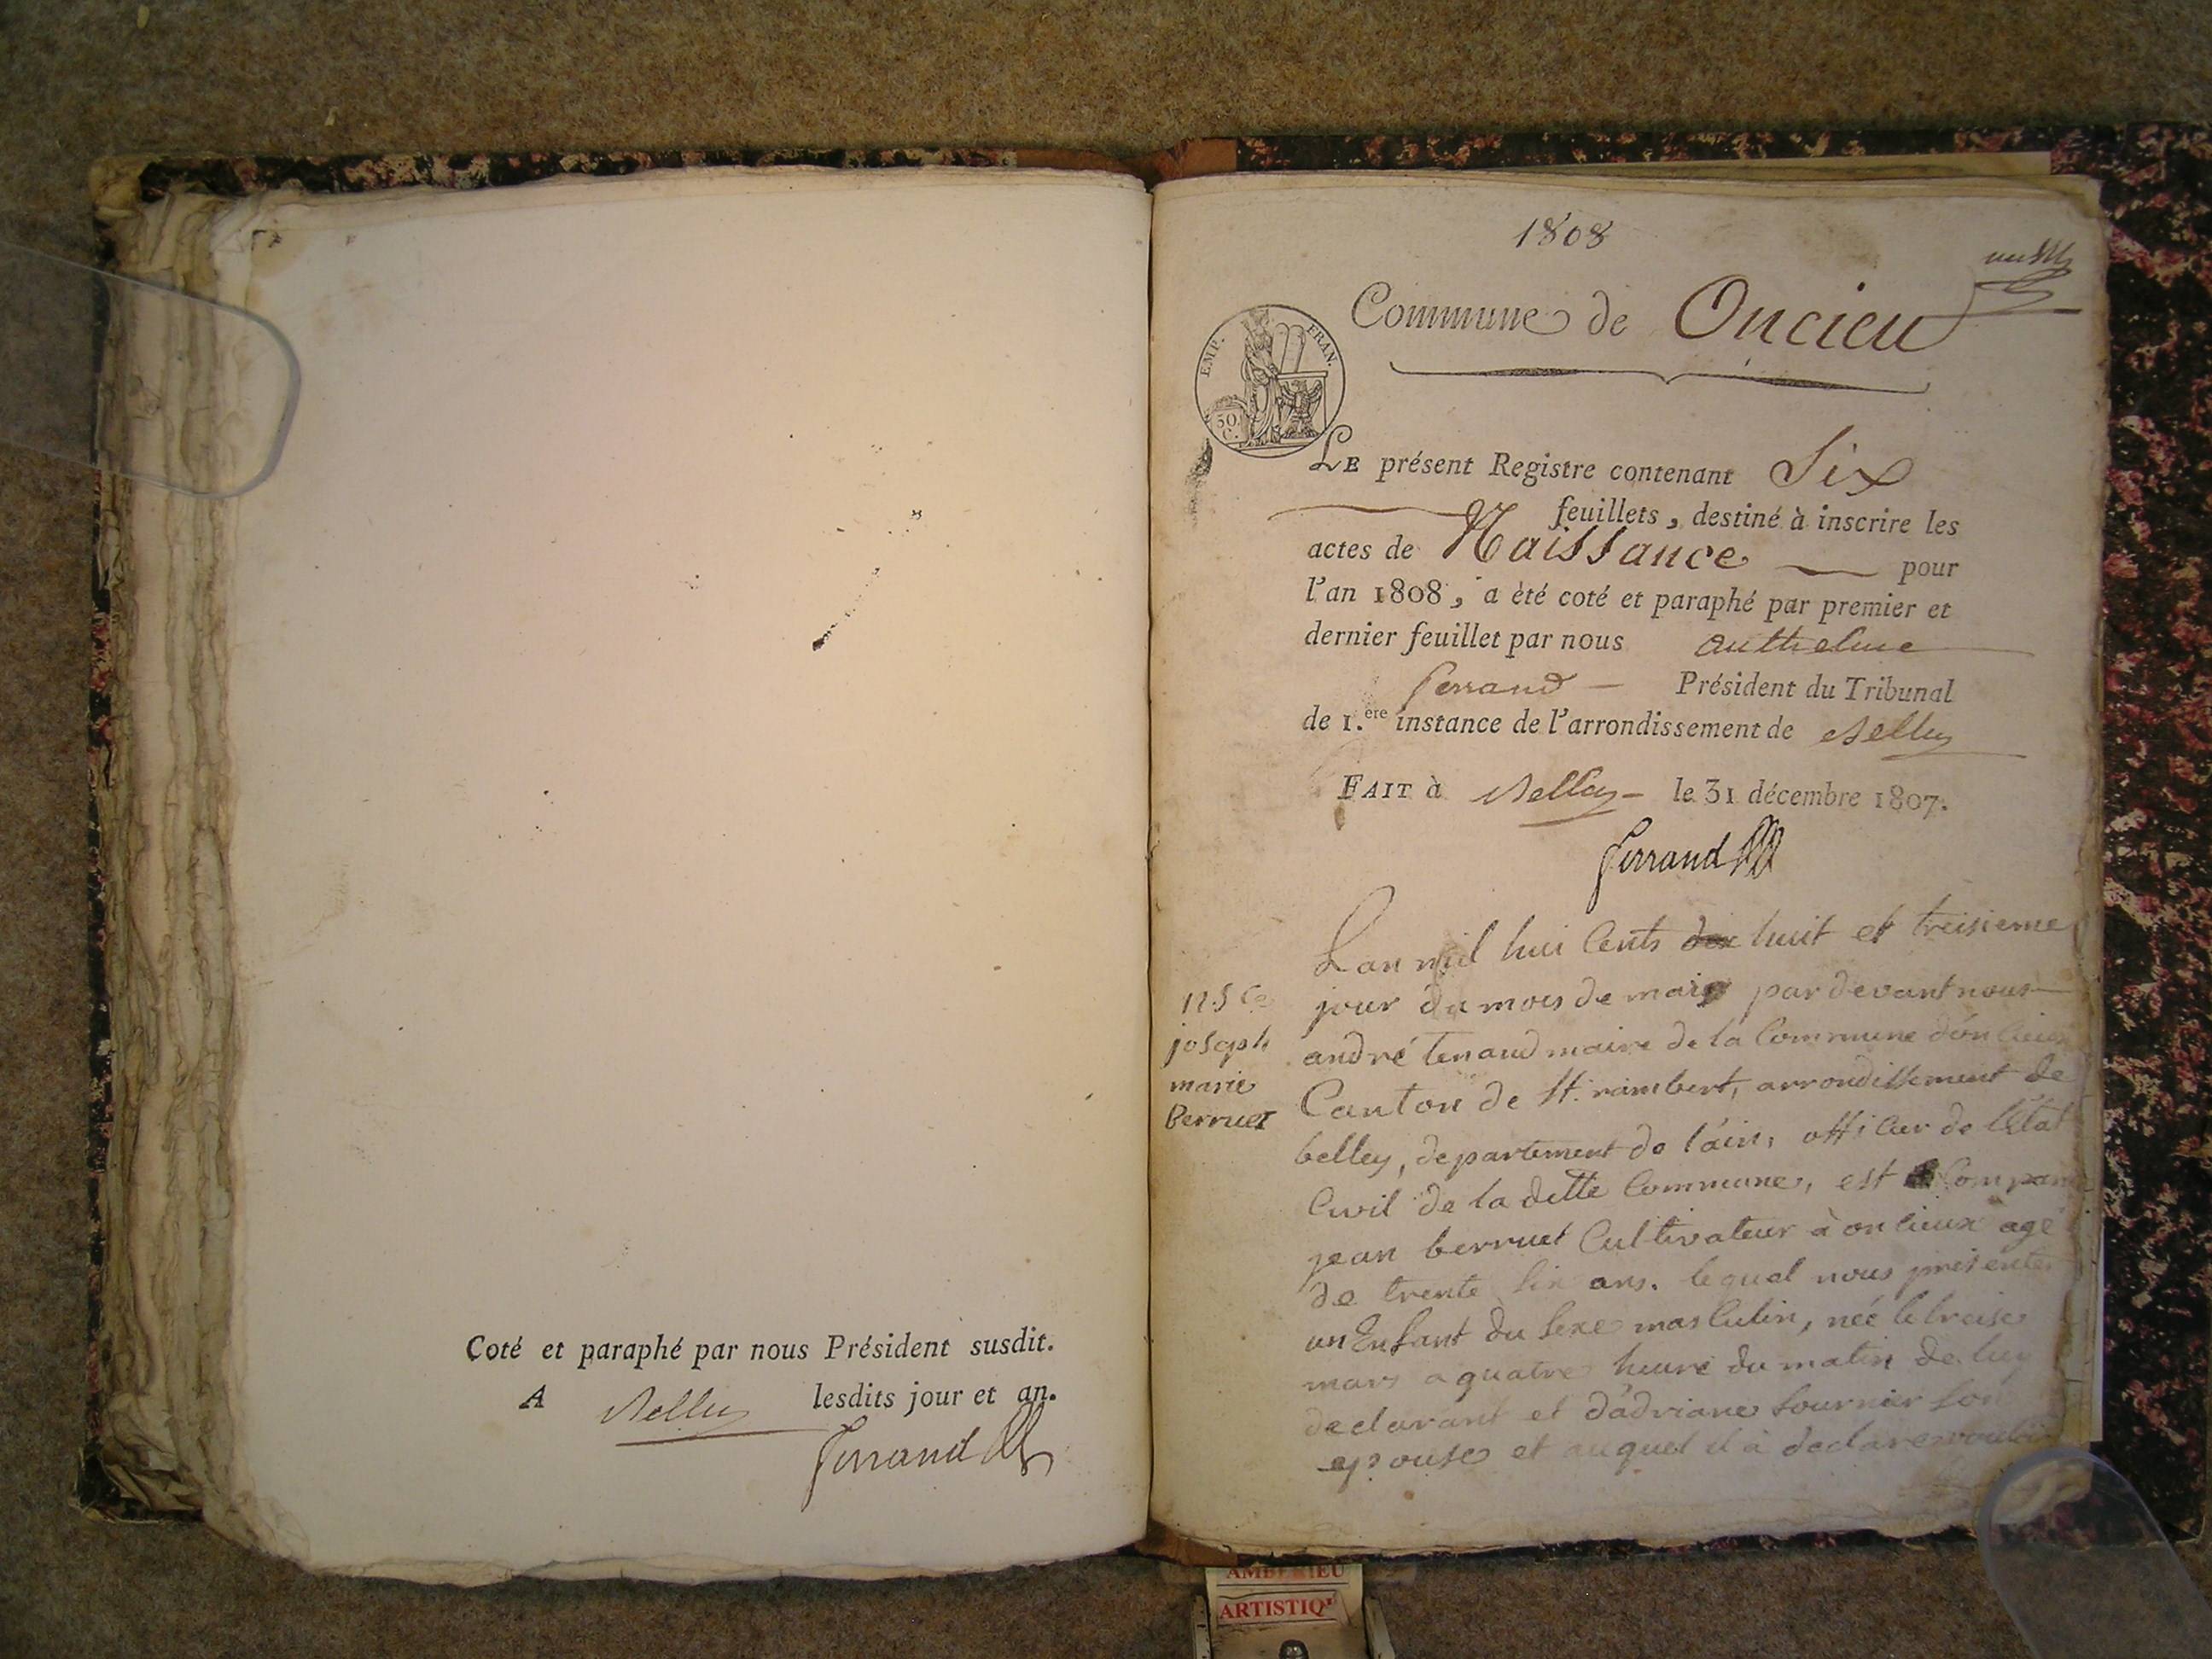 Coté et paraphé par nous Président susdit.
A Belley lesdits jour et an.
Ferrand
1808
Commune de Oncieu
EMP. FRAN.
30. C.
LE présent Registre contenant Six
feuillets, destiné à inscrire les
actes de Naissance pour
l'an 1808, a èté coté et paraphé par premier et
dernier feuillet par nous Anthelme
Ferrand Président du Tribunal
de 1.ère instance de l'arrondissement de Belley
FAIT à Belley le 31 décembre 1807.
Ferrand
Lan mil hui Cents huit et treisieme
jour du mois de mars par devant nous
andré tenaud maire de la Commune d'oncieux
Canton de St. rambert, arrondissement de
belley, departement de l'ain, officier de l'Etat
Civil de la ditte Commune, est Comparu
jean berruet Cultivateur à oncieux agé
de trente Six ans. lequel nous presente
un Enfant du Sexe masculin, née le treise
mars a quatre heure du matin de luy
declarant et d'adriane fournier Son
epouse et auquel il à declare vouloir
N.sce
joseph
marie
berruet
AMBERIEU
ARTISTIQ